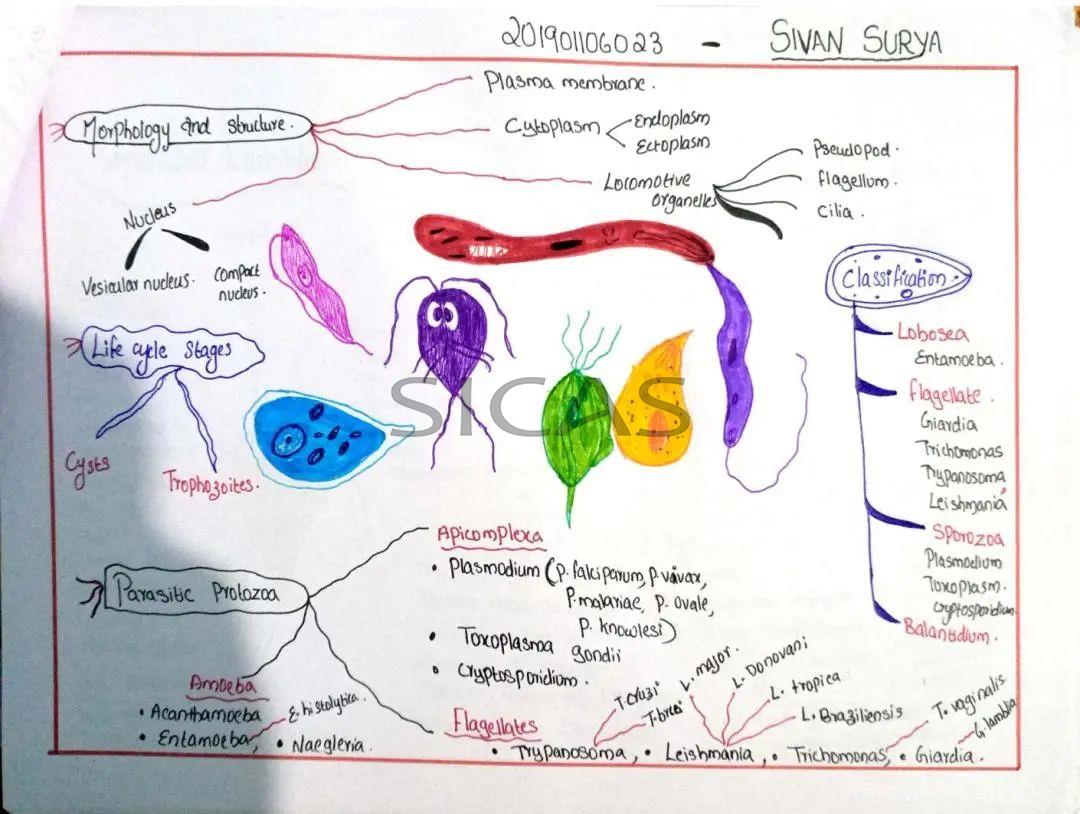 201901106023 - SIVAN SURYA
Morphology and structure.
Plasma membrane.
Cytoplasm
Endoplasm
Ectoplasm
Locomotive
organelles
Pseudopod.
flagellum.
Cilia.
Nucleus
Vesicular nucleus.
Compact
nucleus.
Life cycle stages
Cysts
Trophozoites.
SICAS
Classification.
Lobosea
Entamoeba.
flagellate.
Giardia
Trichomonas
Trypanosoma
Leishmania
Sporozoa
Plasmodium
Toxoplasm.
Cryptosporidium
Balantidium.
Parasitic Protozoa
Apicomplexa
• Plasmodium (P. falciparum, P. vivax,
P. malariae, P. ovale,
P. knowlesi)
• Toxoplasma gondii
• Cryptosporidium.
Amoeba
• Acanthamoeba
• Entamoeba, • Naegleria.
E. histolytica.
Flagellates
• Trypanosoma, • Leishmania, • Trichomonas, • Giardia.
T. cruzi
L. major.
L. Donovani
L. tropica
L. Braziliensis
T. vaginalis
G. lamblia